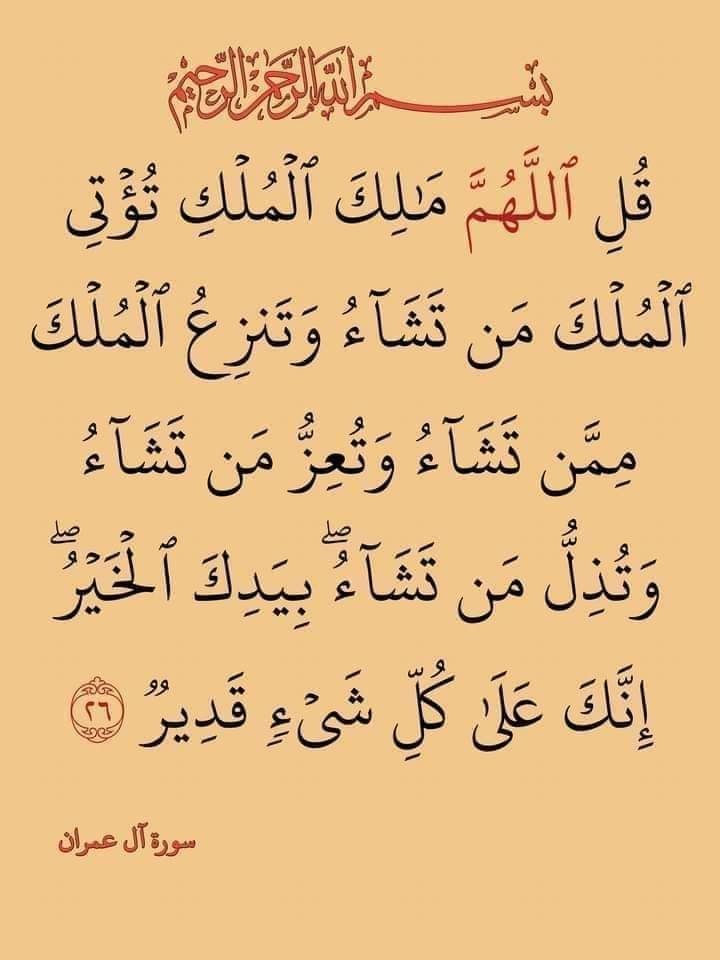 بسم الله الرحمن الرحيم
قُلِ ٱللَّهُمَّ مَـٰلِكَ ٱلْمُلْكِ تُؤْتِى
ٱلْمُلْكَ مَن تَشَآءُ وَتَنزِعُ ٱلْمُلْكَ
مِمَّن تَشَآءُ وَتُعِزُّ مَن تَشَآءُ
وَتُذِلُّ مَن تَشَآءُ ۖ بِيَدِكَ ٱلْخَيْرُ ۖ
إِنَّكَ عَلَىٰ كُلِّ شَىْءٍ قَدِيرٌ ٢٦
سورة آل عمران